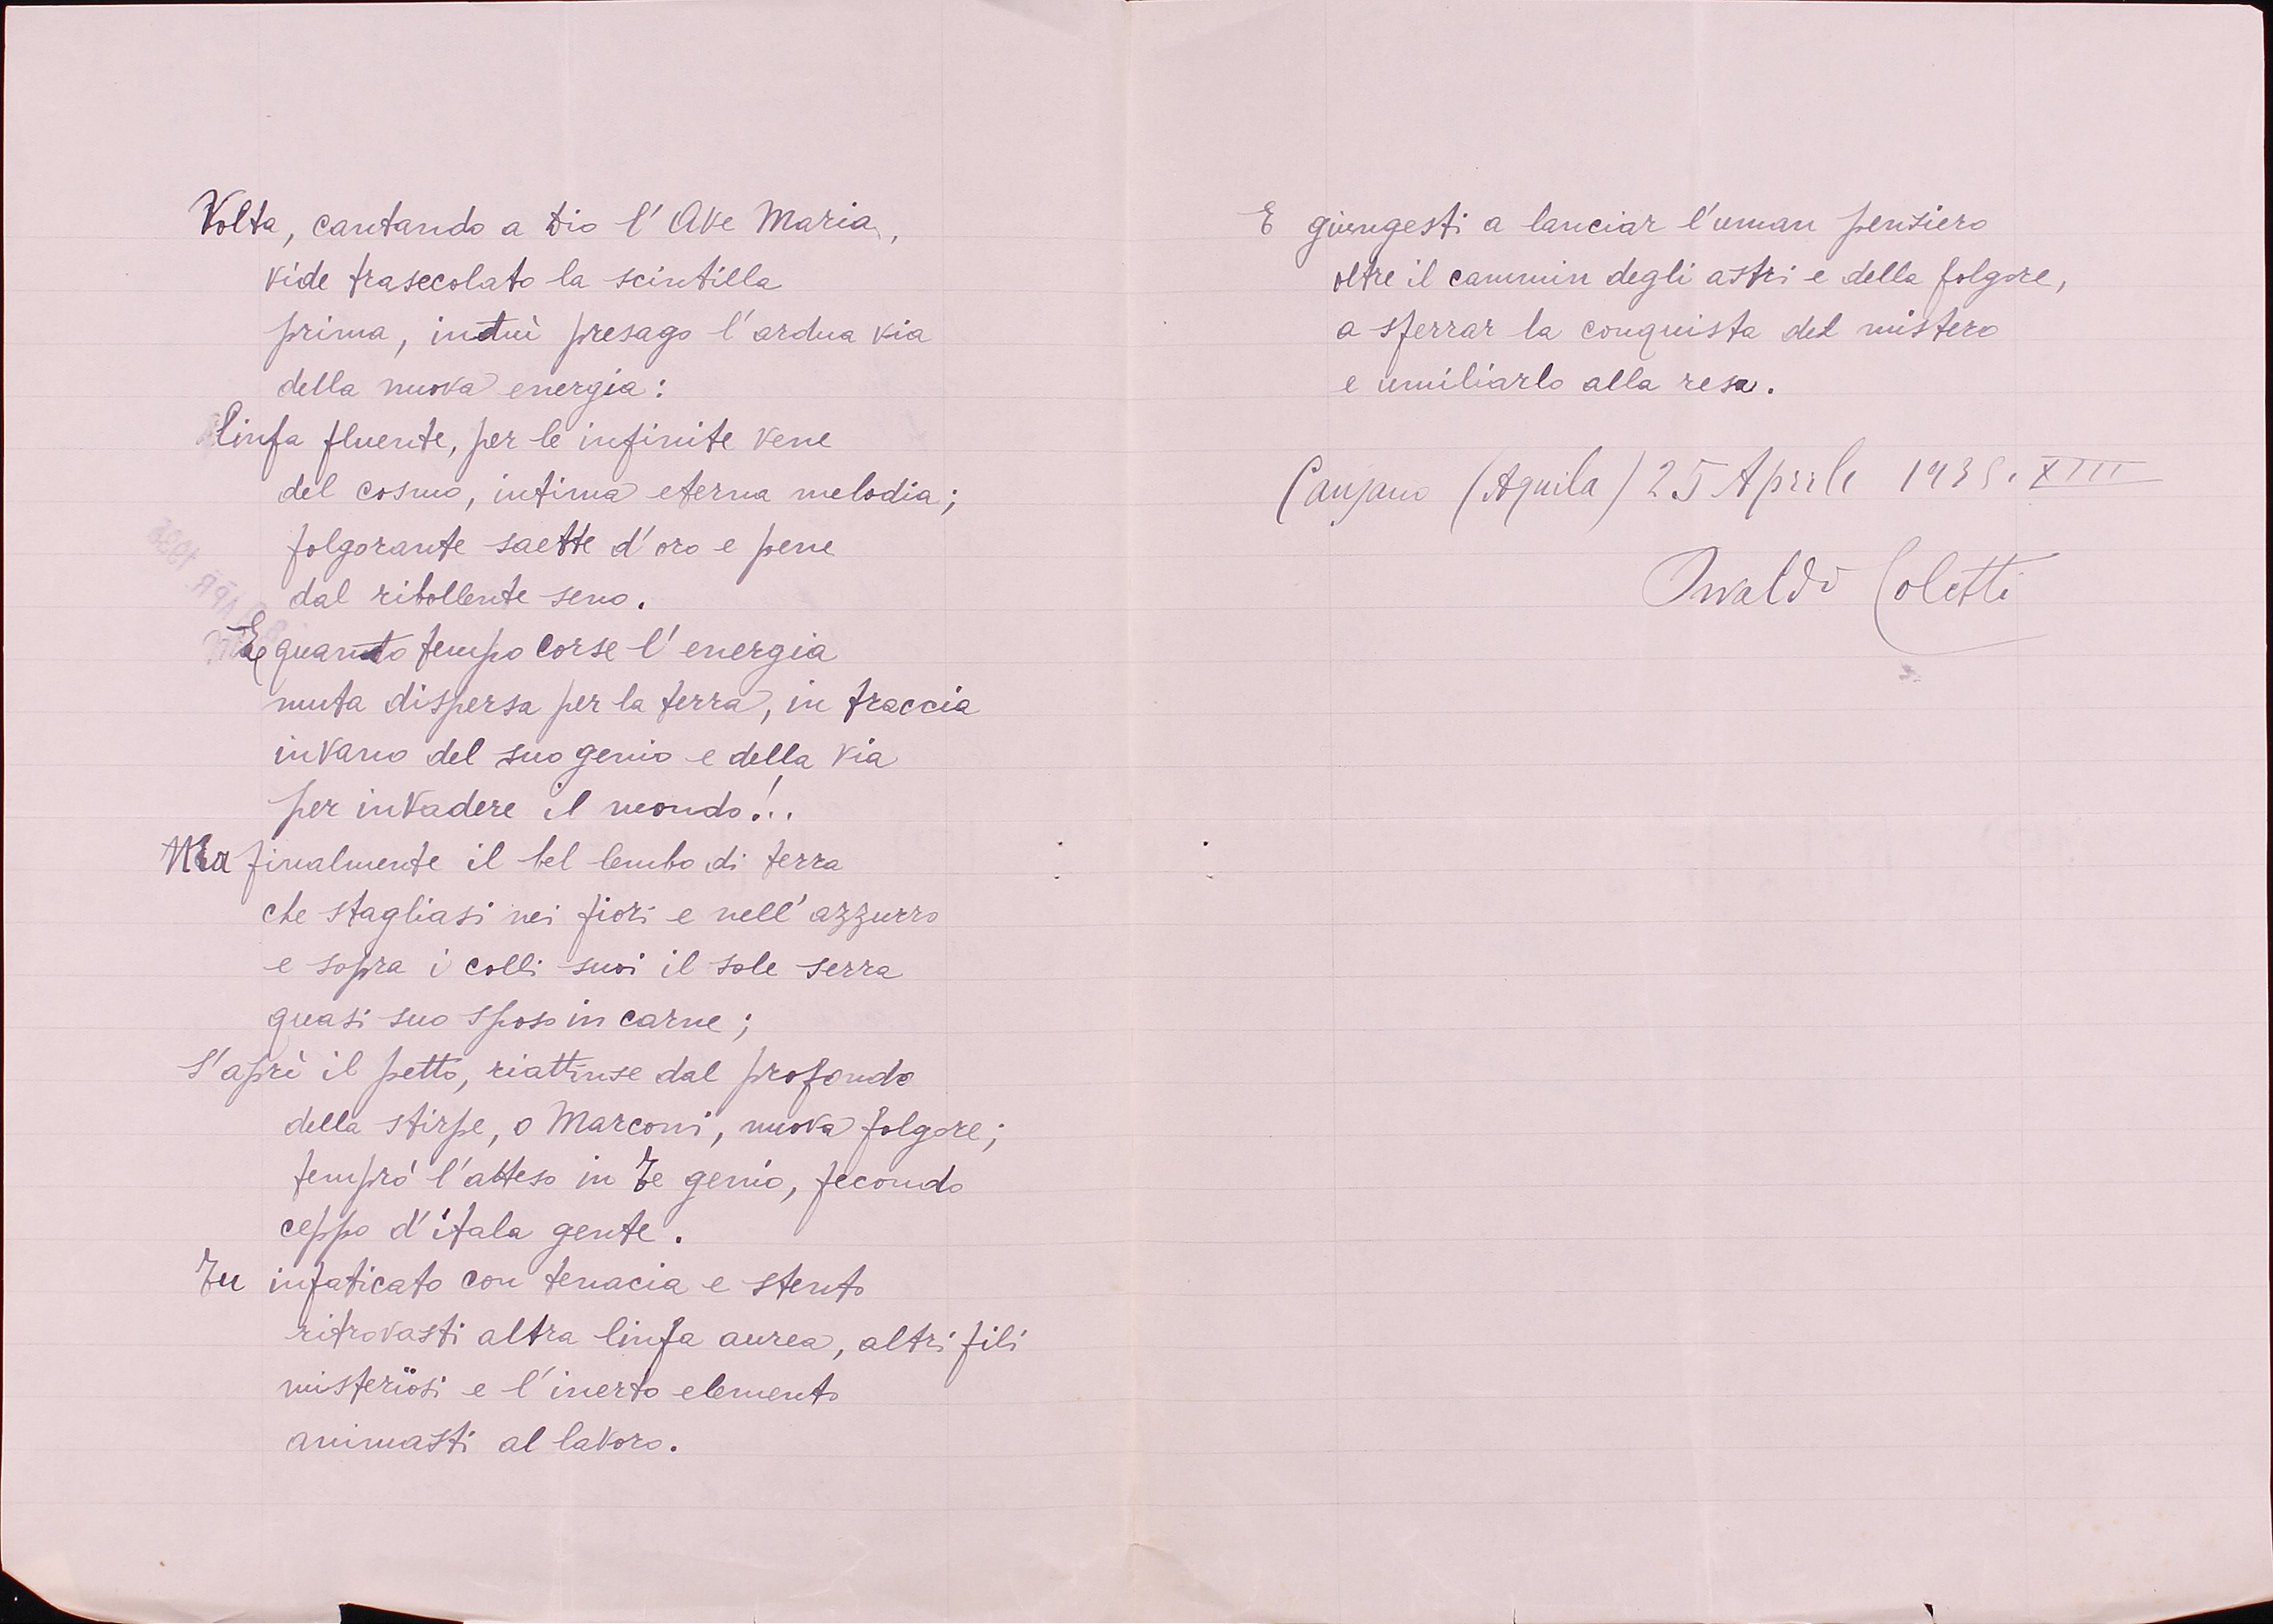 Volta, cantando a Dio l'Ave Maria,
vide trasecolato la scintilla
prima, intuì presago l'ardua via
della nuova energia:
linfa fluente, per le infinite vene
del cosmo, intima eterna melodia;
folgorante saette d'oro e pene
dal ribollente seno.
E quanto tempo corse l'energia
muta dispersa per la terra, in traccia
invano del suo genio e della via
per invadere il mondo!..
Ma finalmente il bel lembo di terra
che stagliasi nei fiori e nell'azzurro
e sopra i colli suoi il sole serra
quasi suo sposo in carne;
s'aprì il petto, riattinse dal profondo
della stirpe, o Marconi, nuova folgore;
temprò l'atteso in Te genio, fecondo
ceppo d'itala gente.
Tu infaticato con tenacia e stento
ritrovasti altra linfa aurea, altri fili
misterïosi e l'inerto elemento
animasti al lavoro.
E giungesti a lanciar l'uman pensiero
oltre il cammin degli astri e della folgore,
a sferrar la conquista del mistero
e umiliarlo alla resa.
(Aquila) 25 Aprile 1935. XIII
Osvaldo Coletti